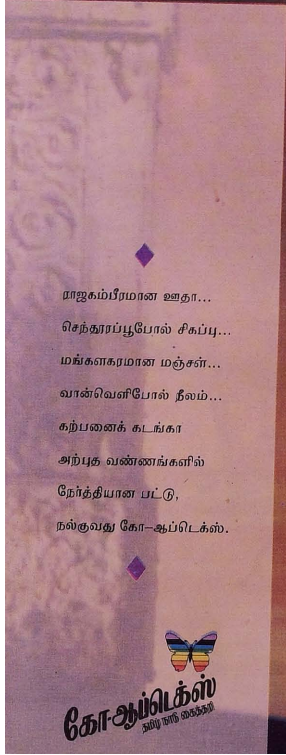 ராஜகம்பீரமான ஊதா...
செந்தூரப்பூபோல் சிகப்பு...
மங்களகரமான மஞ்சள்...
வான்வெளிபோல் நீலம்...
கற்பனைக் கடங்கா
அற்புத வண்ணங்களில்
நேர்த்தியான பட்டு,
நல்குவது கோ–ஆப்டெக்ஸ்.
கோ-ஆப்டெக்ஸ்
தமிழ் நாடு கைத்தறி